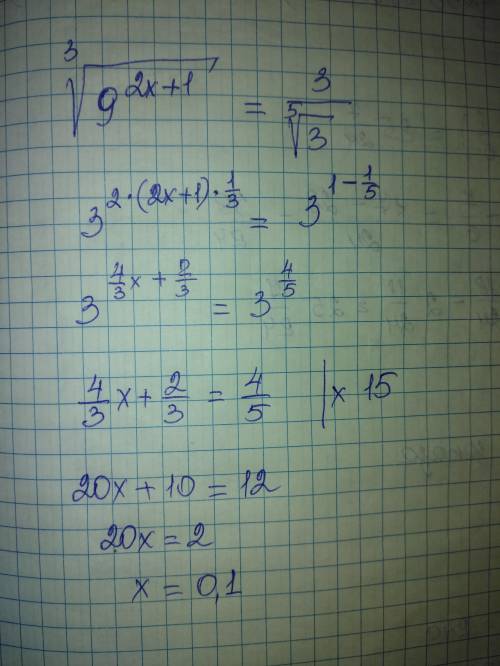 ∛(9^(2x+1)) = 3/⁵√3
3^(2·(2x+1)·1/3) = 3^(1-1/5)
3^(4/3 x + 2/3) = 3^(4/5)
4/3 x + 2/3 = 4/5 | x 15
20x + 10 = 12
20x = 2
x = 0,1